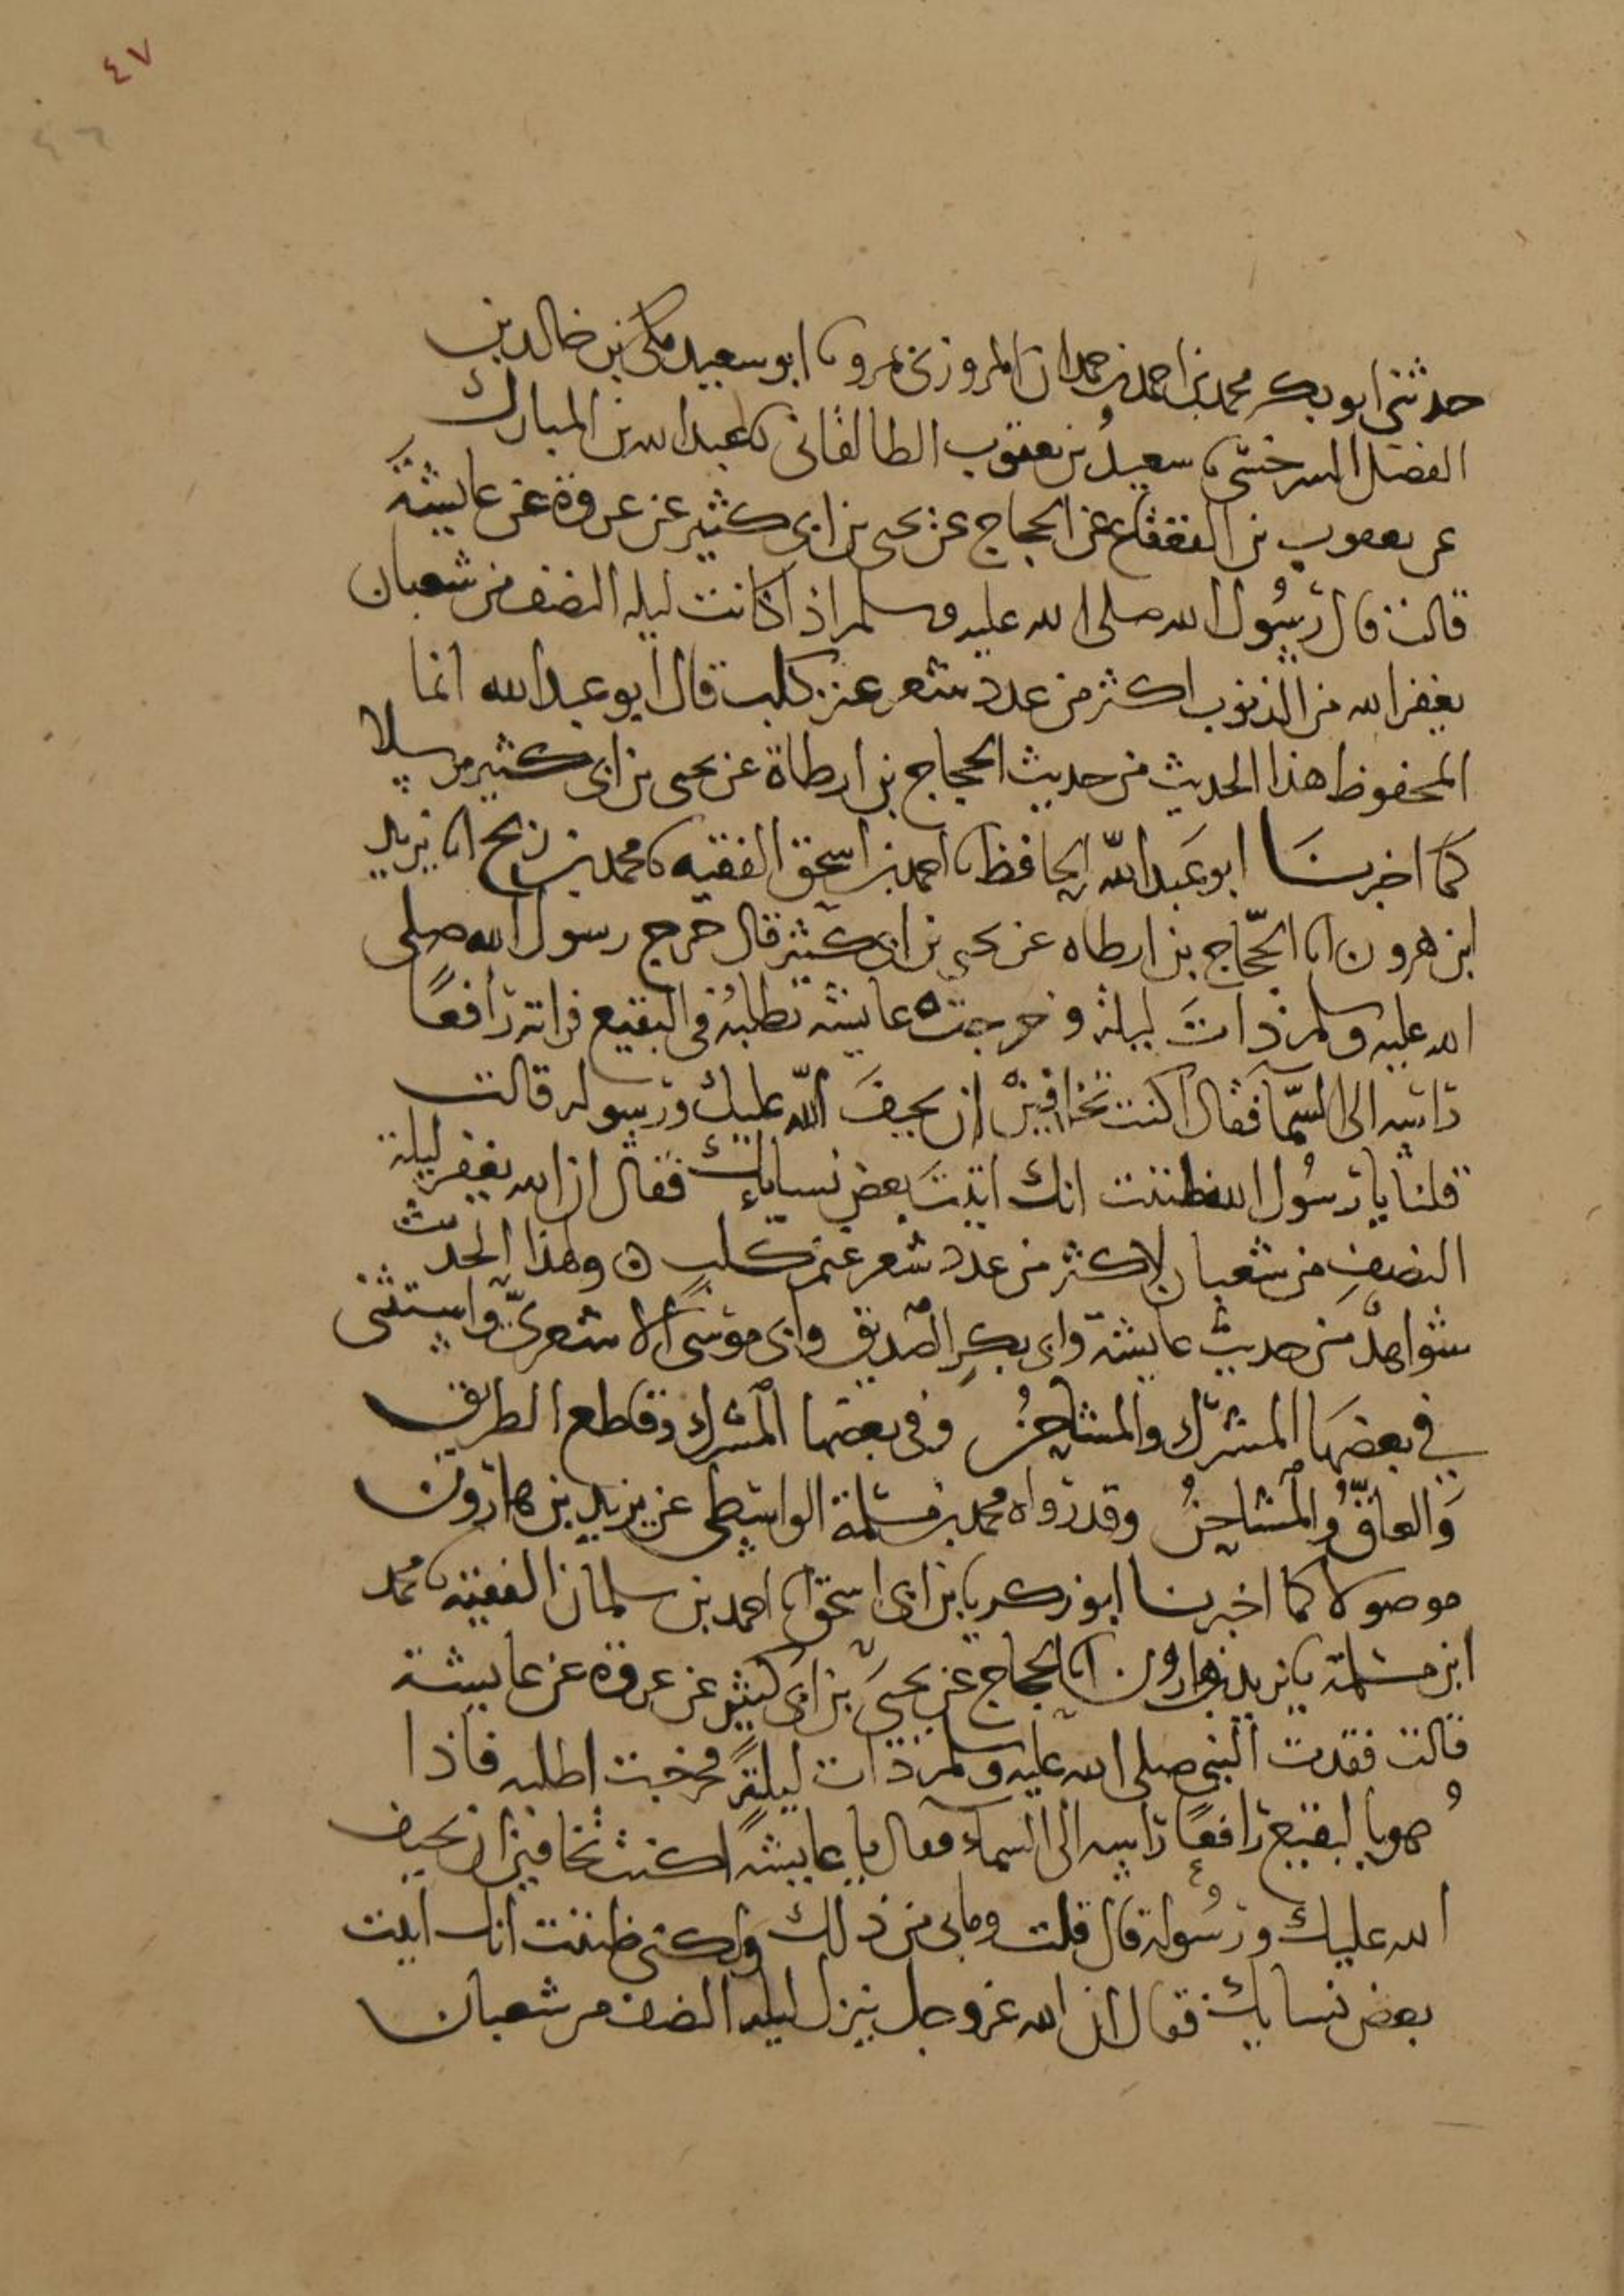 ٤٧
٤٦
حدثني ابو بكر محمد بن احمد بن حمدان المروزي بمرو نا ابو سعيد مكي بن خالد بن
الفضل السرخسي نا سعيد بن يعقوب الطالقاني نا عبد الله بن المبارك
عن يعقوب بن القعقاع عن الحجاج عن يحيى بن ابي كثير عن عروة عن عايشة
قالت قال رسول الله صلى الله عليه وسلم اذا كانت ليلة النصف من شعبان
يغفر الله من الذنوب اكثر من عدد شعر غنم كلب قال ابو عبد الله انما
المحفوظ هذا الحديث من حديث الحجاج بن ارطاة عن يحيى بن ابي كثير مرسلا
كما اخبرنا ابو عبد الله الحافظ نا احمد بن اسحق الفقيه نا محمد بن رمح انا يزيد
ابن هرون انا الحجّاج بن ارطاه عن يحيى بن ابي كثير قال خرج رسول الله صلى
الله عليه وسلم ذات ليلة وخرجت عايشه تطلبه في البقيع فراته رافعًا
راسه الى السّما فقال اكنت تخافين ان يحيف اللّه عليك ورسوله قالت
قلت يا رسول الله ظننت انك اتيت بعض نسايك فقال ان الله يغفر ليلة
النصف من شعبان لاكثر من عدد شعر غنم كلب ه ولهذا الحديث
شواهد من حديث عايشة وابي بكر الصديق وابي موسى الاشعريّ واستثنى
في بعضها المشرك والمشاحن وفي بعضها المشرك وقاطع الطريق
والعاقّ والمشاحن وقد رواه محمد بن مسلمة الواسطي عن يزيد بن هارون
موصولا كما اخبرنا ابو زكريا بن ابي اسحق انا احمد بن سلمان الفقيه نا محمد
ابن مسلمة نا يزيد بن هارون انا الحجاج عن يحيى بن ابي كثير عن عروة عن عايشة
قالت فقدت النبي صلى الله عليه وسلم ذات ليلةٍ فخرجت اطلبه فاذا
هو بالبقيع رافعًا راسه الى السماء فقال يا عايشة اكنت تخافين ان يحيف
الله عليك ورسوله قال قلت وما بي من ذلك ولكني ظننت انك اتيت
بعض نسايك فقال ان الله عز وجل ينزل ليلة النصف من شعبان